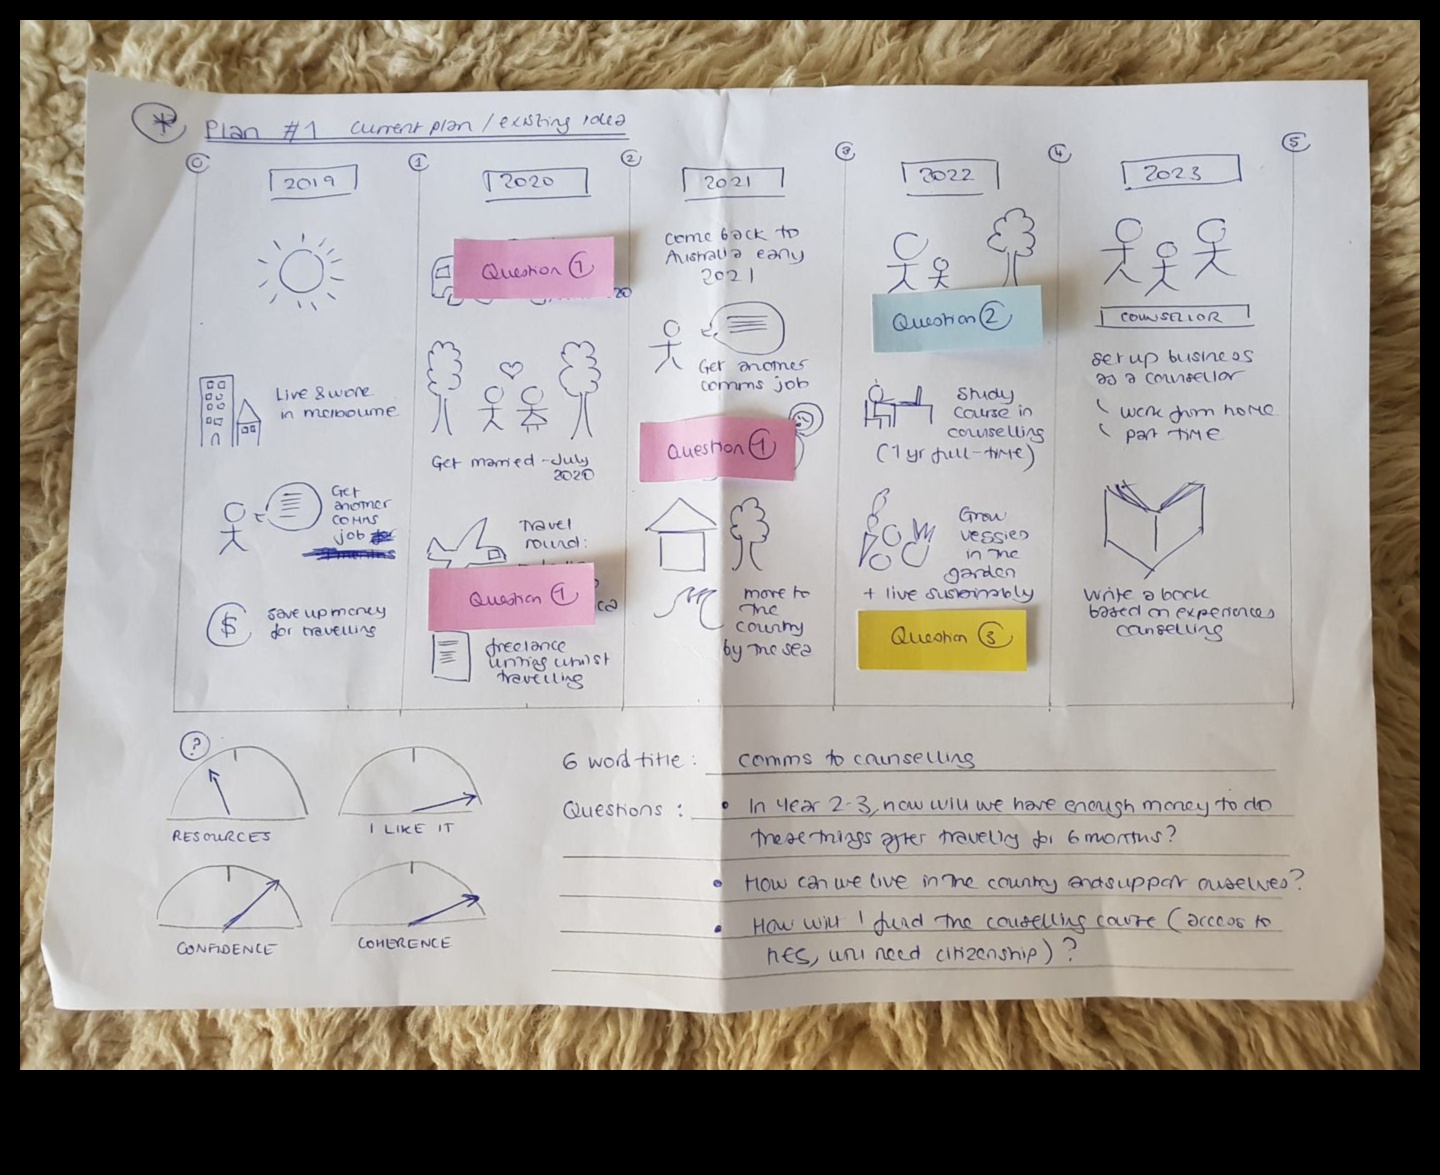 * Plan #1 current plan / existing idea
0 1 2 3 4 5
2019
Live & work
in melbourne
Get
another
comms
job
$ save up money
for travelling
2020
Question 1
2020
Get married - July
2020
Travel
round:
Question 1
ca
freelance
writing whilst
travelling
2021
come back to
Australia early
2021
Get another
comms job
Question 1
move to
the
country
by the sea
2022
Question 2
Study
course in
counselling
(1 yr full-time)
Grow
veggies
in the
garden
+ live sustainably
Question 3
2023
COUNSELLOR
set up business
as a counsellor
work from home
part time
write a book
based on experiences
counselling
?
RESOURCES
I LIKE IT
CONFIDENCE
COHERENCE
6 word title: comms to counselling
Questions: • In year 2-3, how will we have enough money to do
these things after traveling for 6 months?
• How can we live in the country and support ourselves?
• How will I fund the counselling course (access to
, will need citizenship)?